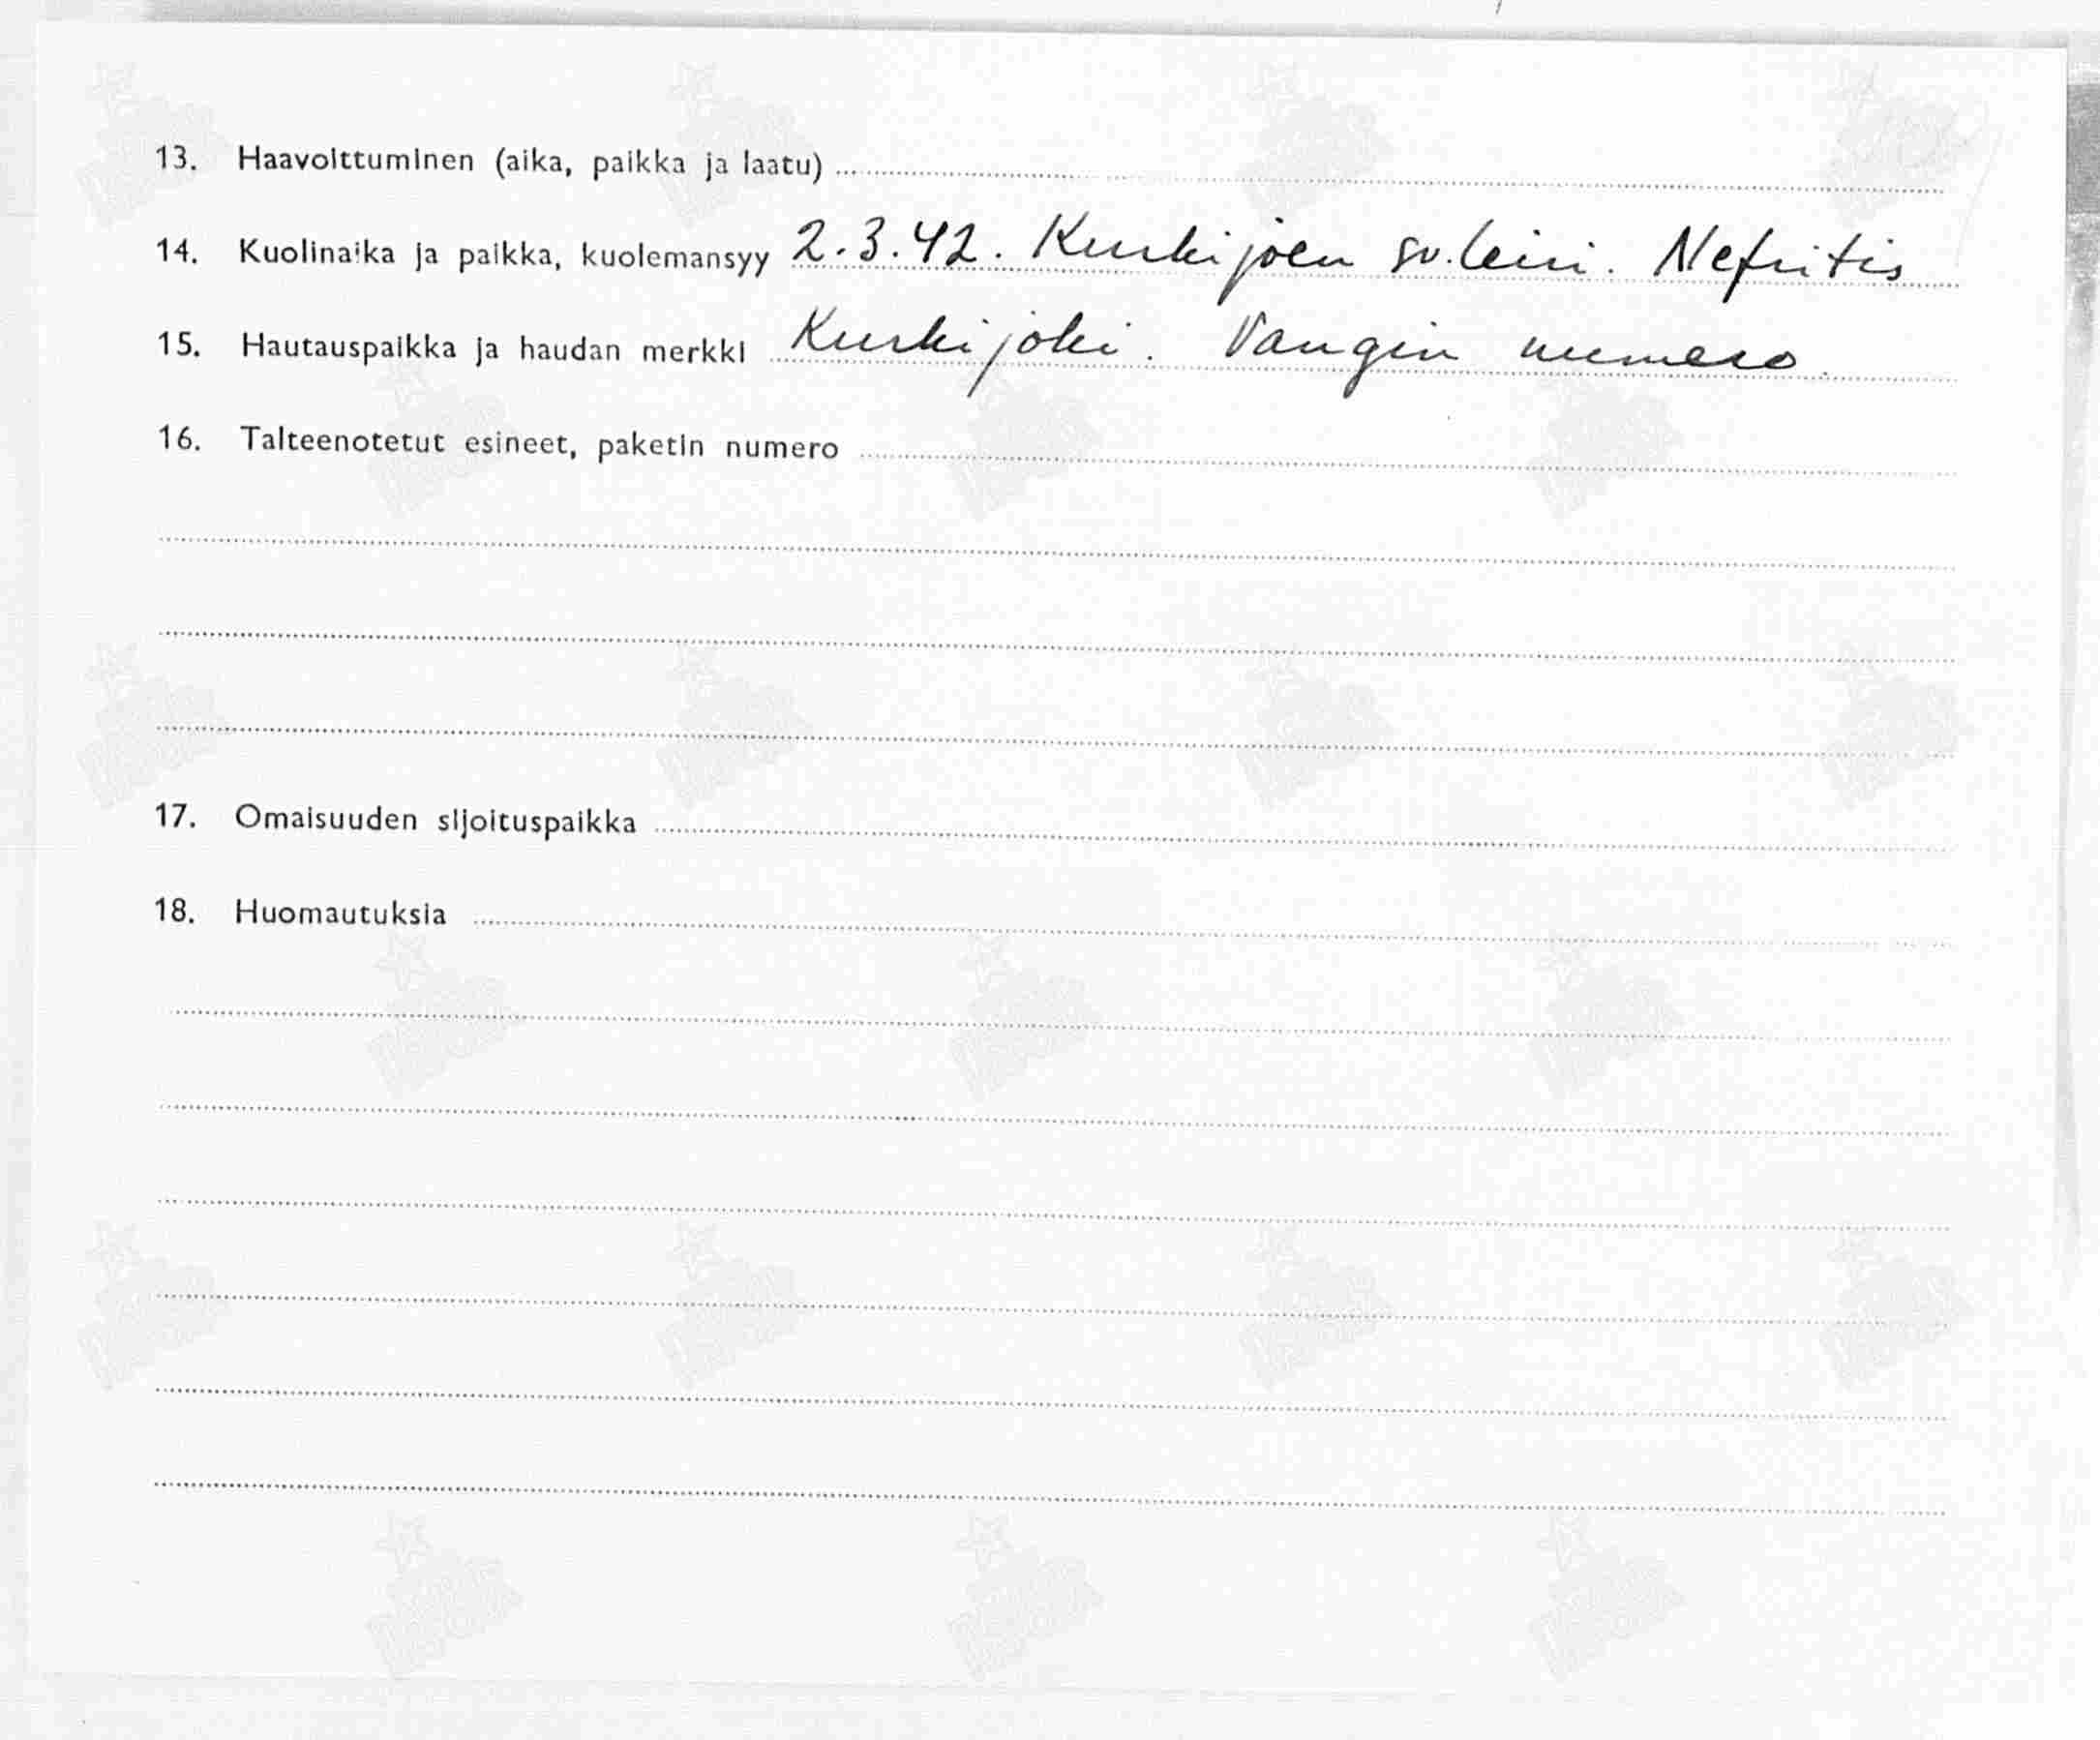 13. Haavoittuminen (aika, paikka ja laatu)
14. Kuolinaika ja paikka, kuolemansyy 2.3.42. Kurkijoen sv.leiri. Nefritis
15. Hautauspaikka ja haudan merkki Kurkijoki. Vangin numero.
16. Talteenotetut esineet, paketin numero
17. Omaisuuden sijoituspaikka
18. Huomautuksia